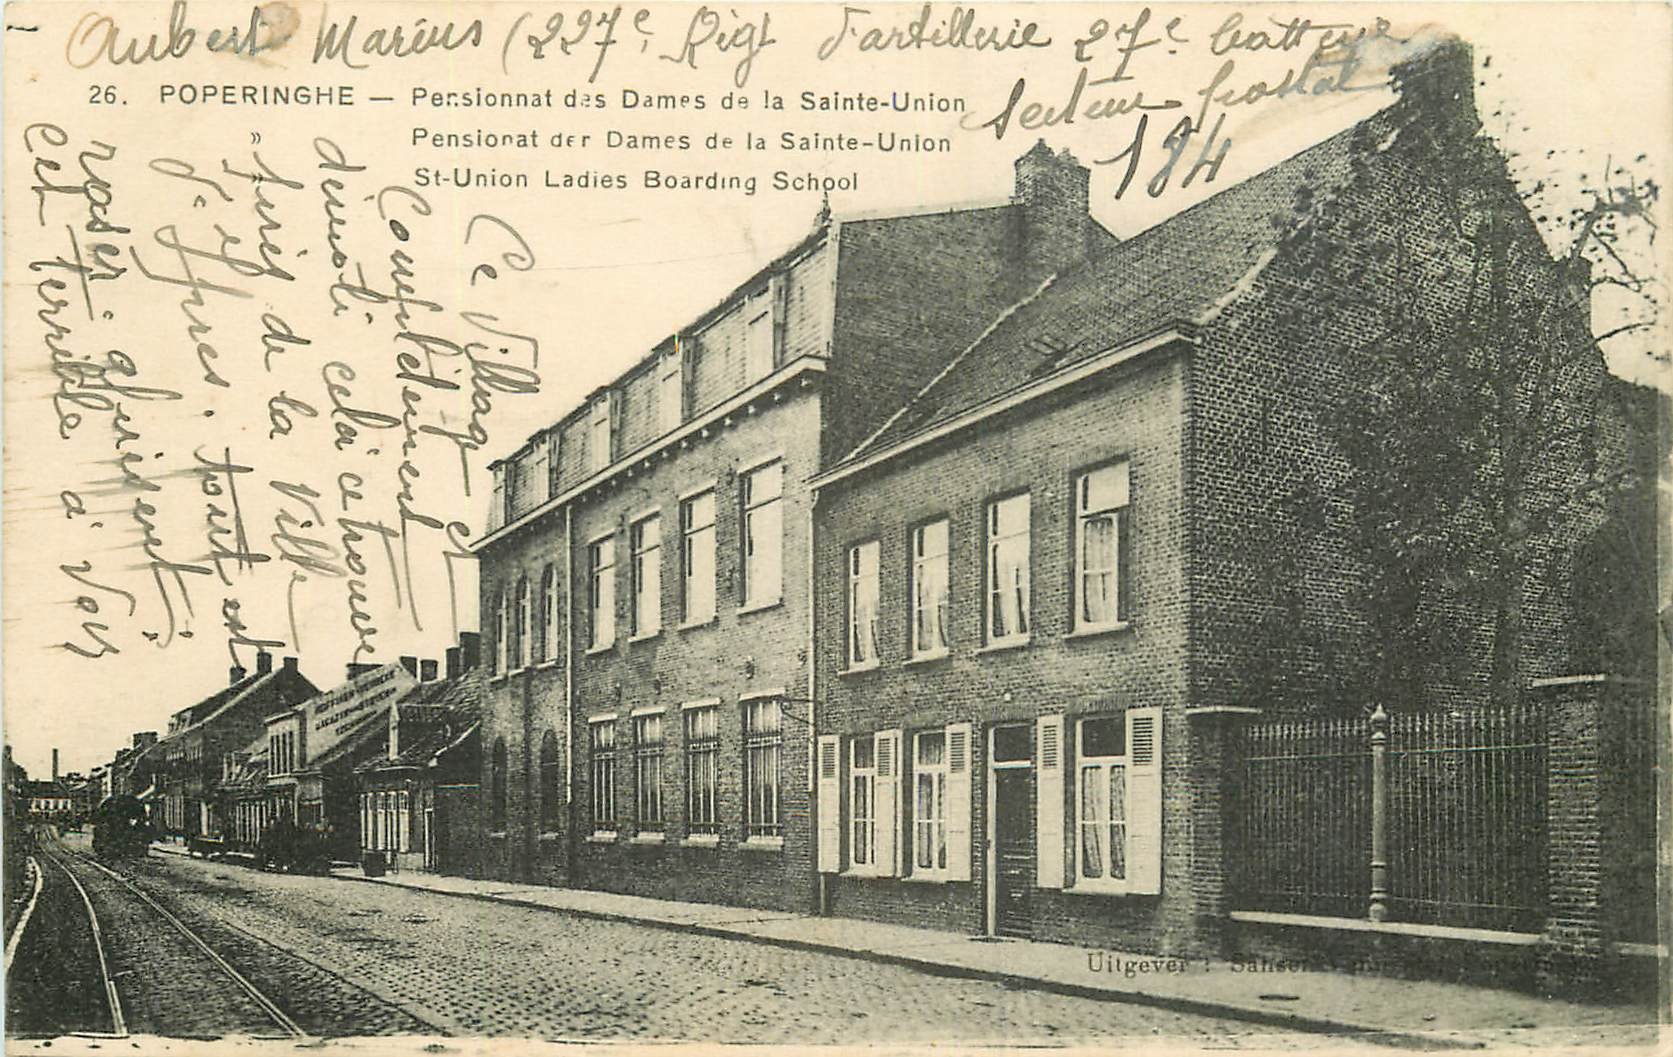 Aubert Marius (227e Rigt d'artillerie 27e batterie
Secteur postal
184
26. POPERINGHE — Pensionnat des Dames de la Sainte-Union
" Pensionat der Dames de la Sainte-Union
" St-Union Ladies Boarding School
Ce Village et
Complétement
démoli cela ce trouve
près de la Ville
d'Ypres. tout est
raser gherisent
Cet terrible à Voir
Uitgever : Sansen